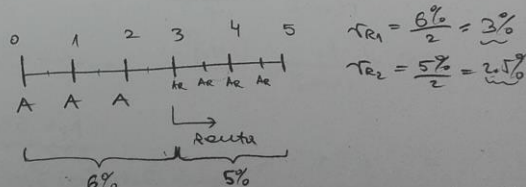 0 1 2 3 4 5
A A A AR AR AR AR
Renta
6% 5%
rR1 = 6%/2 = 3%
rR2 = 5%/2 = 2.5%